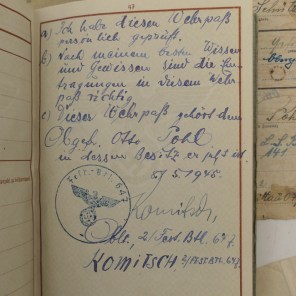 a) Ich habe diesen Wehrpaß
persönlich geprüft.
b) Nach meinem besten Wissen
und Gewissen sind die Ein-
tragungen in diesem Wehr
paß richtig.
c) Dieser Wehrpaß gehört dem
Obgefr. Otto Pohl
in dessen Besitz er jetzt ist.
5.1945.
Komitsch
2/Fest. Btl. 647.
KOMITSCH, 2/FEST BTL. 647.